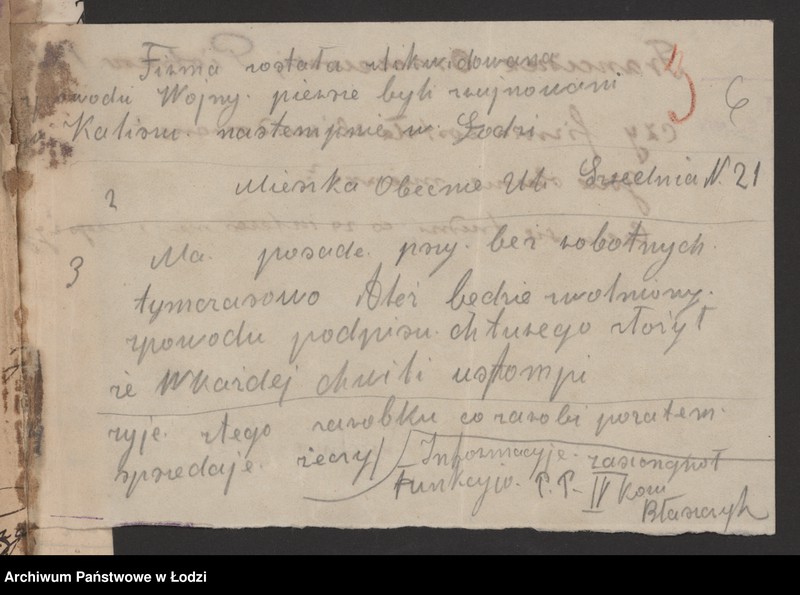 6
Firma została zlikwidowana
zpowodu Wojny. piersze byli zrujnowani
Kalisu. nastempnie w. Łodzi
2 Mieszka Obecnie Ul. Średnia N. 21
3 Ma. posade. przy. bez robotnych.
tymczasowo Ale będzie zwolniony.
zpowodu podpisu. złożył
że W każdej chwili ustompi
zyje. ztego zarobku co zarobi pozatem.
spszedaje. rzeczy
Informacyje. zasiongnoł
Funkcyjo. P.P. IV Kom
Błaszczyk
Archiwum Państwowe w Łodzi